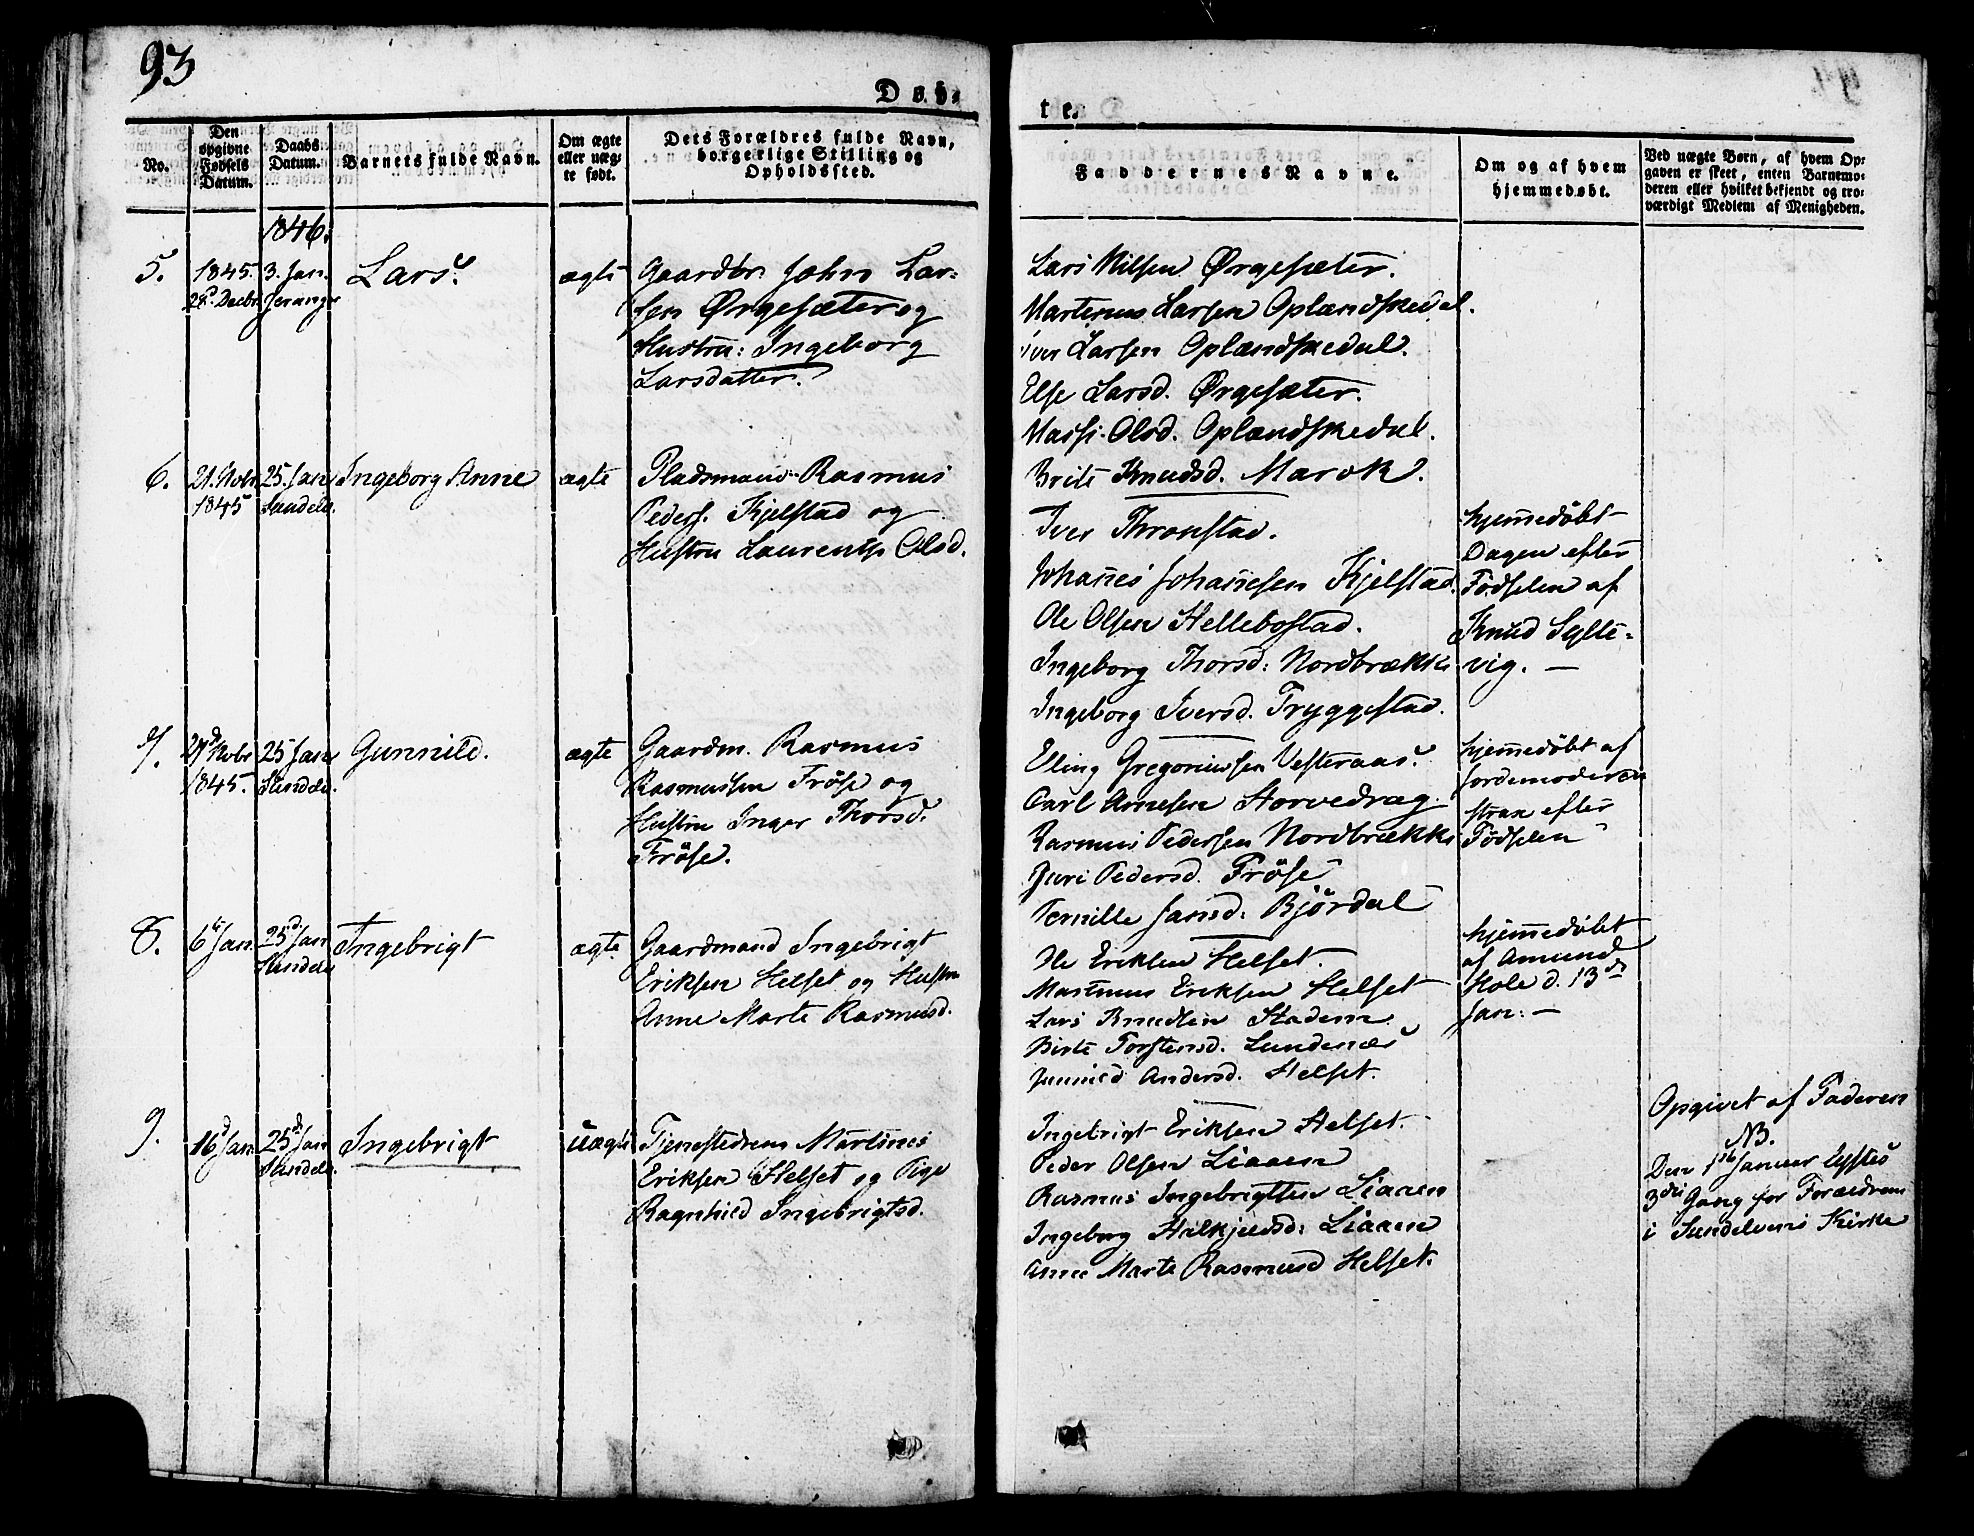 93
Døb-
te.
No.
Den opgivne Fødsels Datum.
Daabs Datum.
Barnets fulde Navn.
Om ægte eller uæg- te født.
Dets Forældres fulde Navn, borgerlige Stilling og Opholdssted.
Faddernes Navne.
Om og af hvem hjemmedøbt.
Ved uægte Børn, af hvem Op-
gaven er skeet, enten Barnemo-
deren eller hvilket bekjendt og tro-
værdigt Medlem af Menigheden.
1846.
5.
1845.
28. Decbr
3. Jan.
Lars
ægte
Gaardbr. John Lar-
sen Ørgesæter og
Hustru: Ingeborg
Larsdatter.
Lars Nilsen Ørgesæter.
Martinus Larsen Oplændskedal.
Iver Larsen Oplændskedal.
Else Larsd. Ørgesæter.
Massi Olsd. Oplændskedal.
Brite Knudsd. Marok.
6.
21. Nobr
1845
25. Jan
Sundelv.
Ingeborg Anne
ægte
Pladsmand Rasmus
Peders. Kjelstad og
Hustru Laurentse Olsd.
Iver Thronstad.
Johanes Johanesen Kjelstad.
Ole Olsen Hellebostad.
Ingeborg Thorsd: Nordbrække
Ingeborg Iversd. Tryggestad.
hjemedøbt
Dagen efter
Fødselen af
Knud Sylte-
vig. —
7.
Nobr
1845.
25 Jan
Sundelv.
Gunnild.
ægte
Gaardm. Rasmus
Rasmussen Frøse og
Hustru Inger Thorsd.
Frøse.
Eling Gregoriussen Vesteraas.
Carl Arnesen Storvedrag
Rasmus Pedersen Nordbrække
Guri Pedersd. Frøse
Pernille Jansd: Bjørdal
hjemedøbt af
Jordemoderen
strax efter
Fødselen
8.
6te Jan
25d Jan
Sundelv
Ingebrigt
ægte
Gaardmand Ingebrigt
Eriksen Helset og Hustru
Anne Marte Rasmusd.
Ole Eriksen Helset.
Martinus Eriksen Helset
Lars Knudsen Stadem
Birte Torstensd. Lundenæs
Gunild Andersd. Helset.
hjemedøbt
af Amund
Hole d. 13de
Jan: —
9.
16d Jan
25d Jan
Sundelv.
Ingebrigt
uægte
Tjenestedreng Martines
Eriksen Helset og Pige
Ragnhild Ingebrigtsd.
Ingebrigt Eriksen Helset.
Peder Olsen Liaaen
Rasmus Ingebrigtsen Liaaen
Ingeborg Hilkjelsd: Liaaen
Anne Marte Rasmusd Helset.
Opgivet af Faderen
NB.
Den 1ste Januar lystes
3die Gang for Forældrene
i Sundelvens Kirke